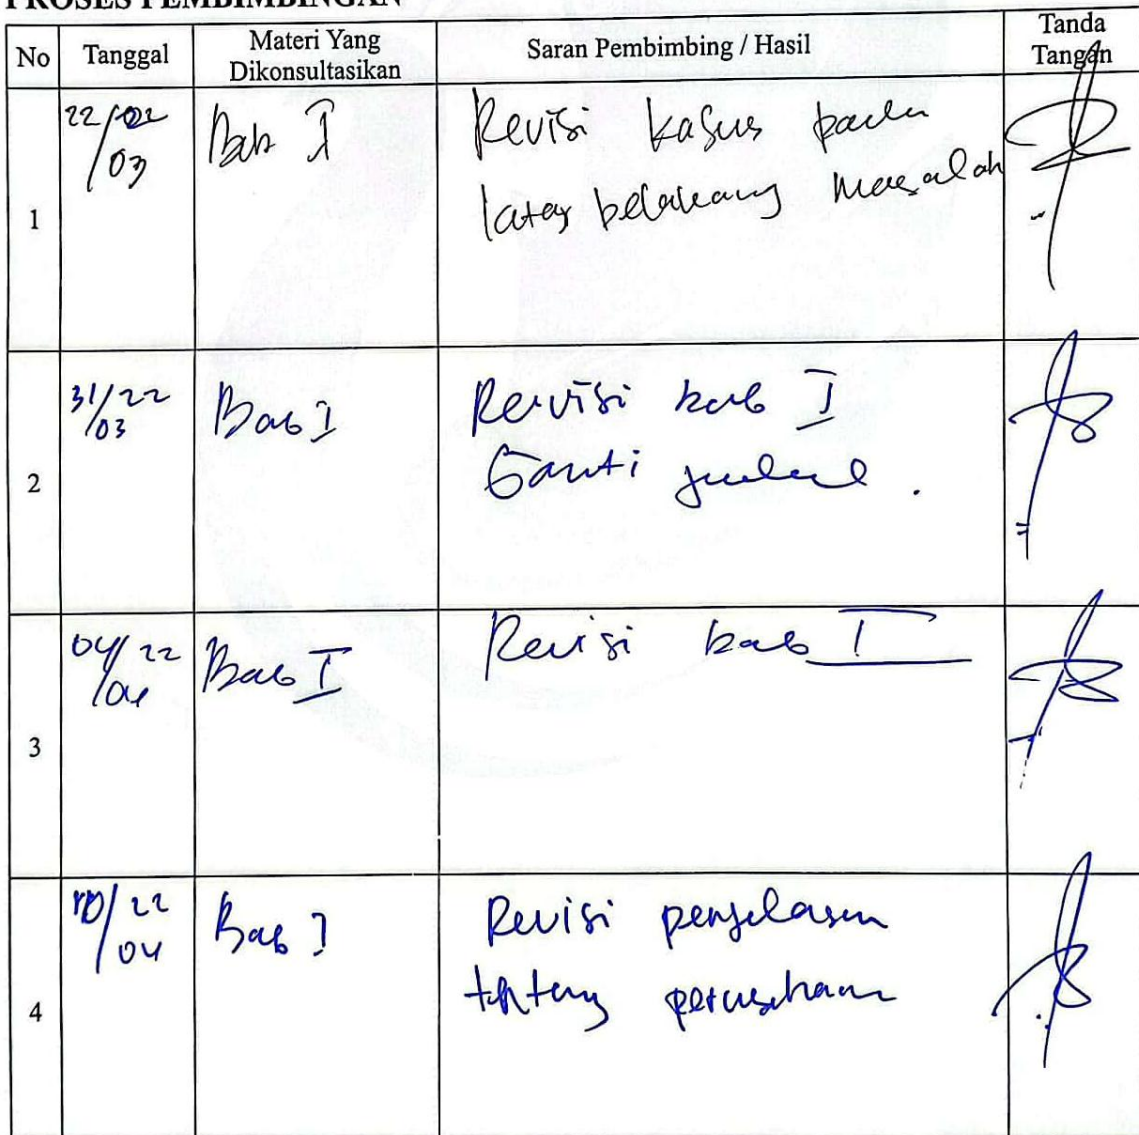 PROSES PEMBIMBINGAN
No Tanggal Materi Yang Dikonsultasikan Saran Pembimbing / Hasil Tanda Tangan
1 22/03 22 Bab I Revisi kasus pada
latar belakang masalah
2 31/03 22 Bab I Revisi bab I
Ganti judul.
3 04/04 22 Bab I Revisi bab I
4 /04 22 Bab I Revisi penjelasan
tentang perusahaan